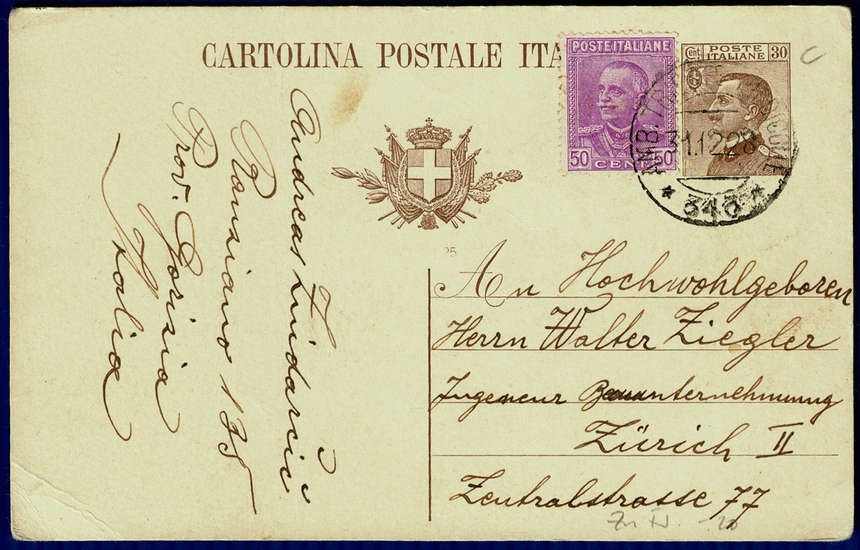 CARTOLINA POSTALE ITA
POSTE ITALIANE
50 CENT 50
Cent POSTE ITALIANE 30
AMB.
31.12.28
* 343 *
C
25
An Hochwohlgeboren
Herrn Walter Ziegler
Ingeneur Bauunternehmung
Zürich II
Zentralstrasse 77
Andreas
Ranziano 135
Prov. Gorizia
Italia